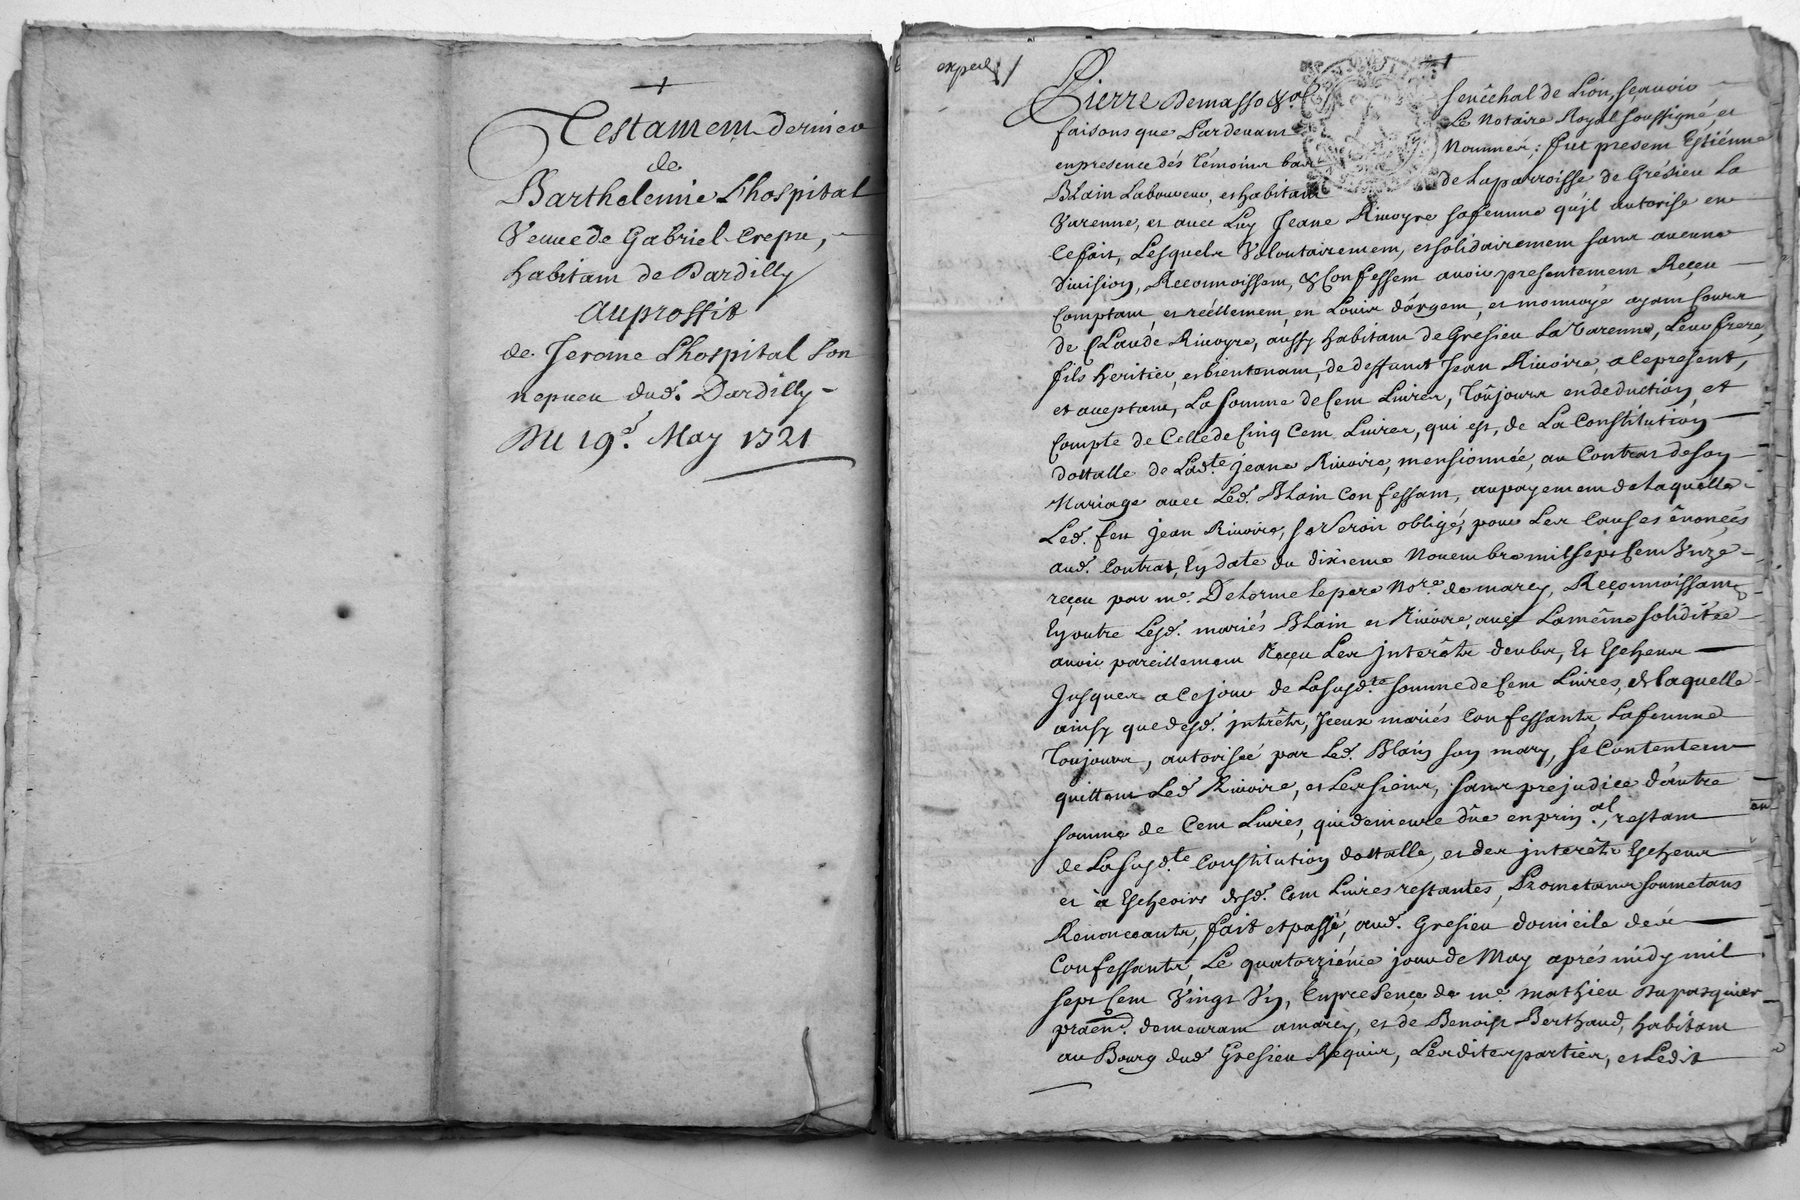 Testament dernier
de
Barthelemie Lhospital
Veuue de Gabriel Crepu,
habitant de Dardilly
Au proffit
de Jerome Lhospital son
nepueu dud. Dardilly
Du 19e. May 1721
exped.
Pierre Demasso &a. senéchal de Lion, sçauoir
faisons que Pardeuant Le Notaire Royal soussigné et
en presence dés témoins bas Nommés; fut present Estienne
Blain Laboureur, et habitant de La parroisse de Grésieu La
Varenne, et auec Luy Jeane Riuoyre sa femme qu'jl autorise en
Ce fait, Lesquels Volontairement, et solidairement sans aucune
diuision, Reconnoissent, & Confessent auoir presentement Reçeu
Comptant, et réellement, en Louis d'argent, et monnoyé ayant Cours
de Claude Riuoyre, aussy habitant de Gresieu La Varenne, Leur frere,
fils heritier, et bientenant, de deffunt Jean Riuoire, a Ce present,
et aceptant, La somme de Cent Liures, Toûjours en deduction, et
Compte de Celle de Cinq Cent Liures, qui est, de La Constitution
dottalle de Lad.te Jeane Riuoire, mensionnée, au Contrat de son
Mariage auec Led. Blain Confessant, au payement de Laquelle
Led. feu Jean Riuoire, se seroit obligé, pour Les Causes énoncées
aud. Contrat, En date du dixieme Nouembre mil sept Cent Vnze
reçeu par me. Delorme le pere No.re de marcy, Reconnoissants
En outre Lesd. mariés Blain et Riuoire, auec La même solidité
auoir pareillement Reçeu Les jnterêts deubs, Et Escheus
Jusques a Ce jour de La susd.te somme de Cent Liures, de laquelle
ainsy que desd. jntrêts, Jceux mariés Confessants, La femme
Toujours, autorisée par Led. Blain son mary, se Contentent
quittent Led. Riuoire, et Les siens, sans prejudice d'autre
somme de Cent Liures, qui demeure düe en prin.al, restant
de La susd.te Constitution dottalle, et des jnterêts Escheus
et à Escheoirs desd. Cent Liures restantes, Prometants soumetans
Renonceants, fait et passé, aud. Gresieu domicile des
Confessants, Le quatorziéme jour de May aprés midy mil
sept Cent Vingt Vn, En presence de me. mathieu Dupasquier
praen. demeurant a marcy, et de Benoist Berthaud, habitant
au Bourg dud. Gresieu Requis, Lesdites parties, et Ledit